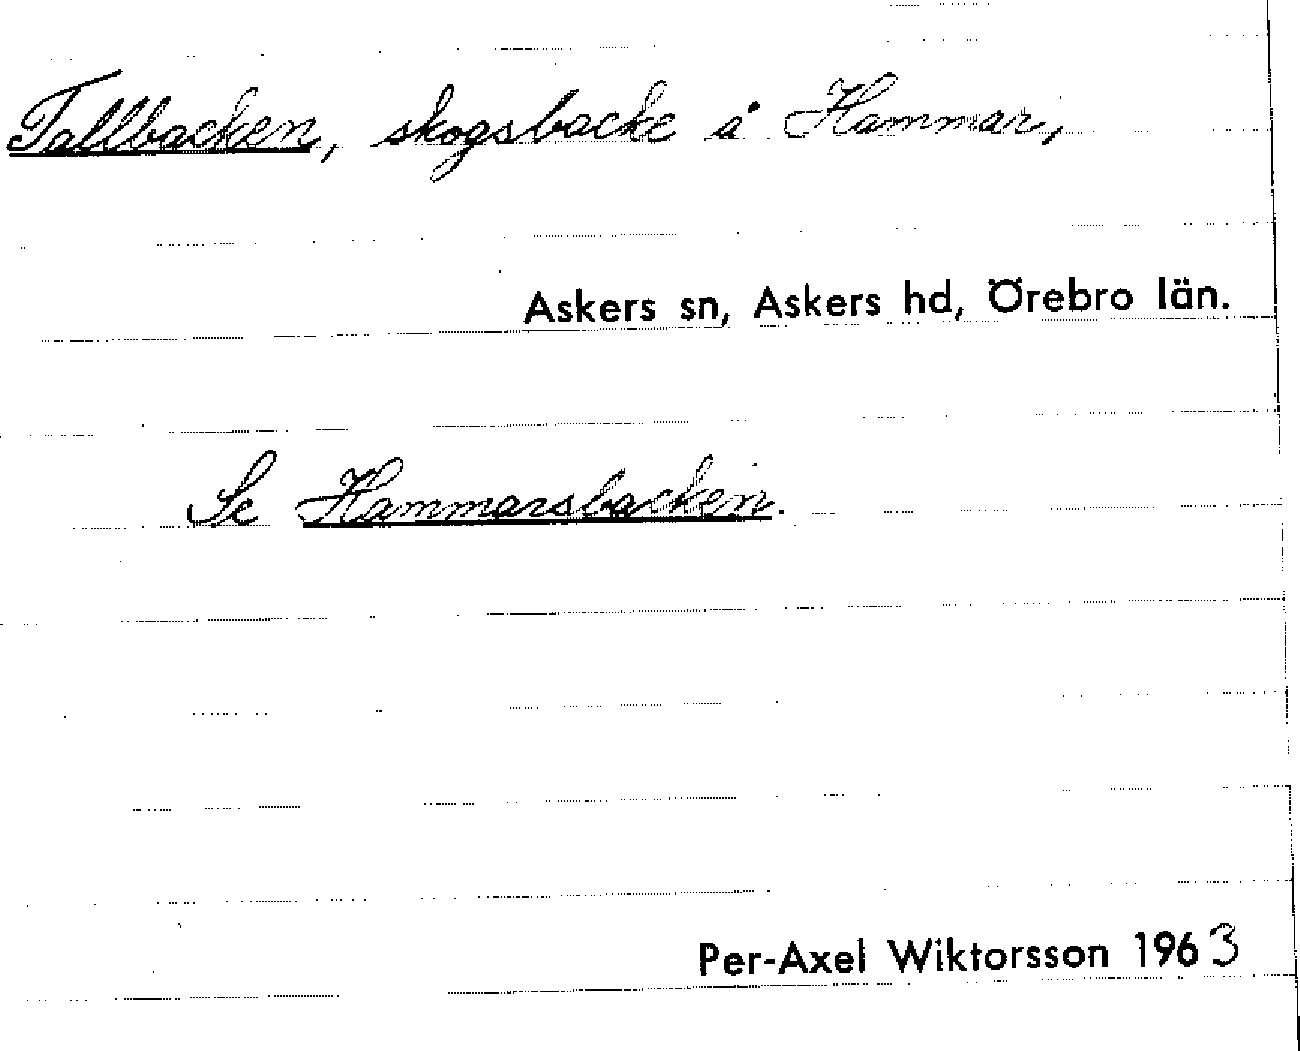 Tallbacken, skogsbacke å Hammar,
Askers sn, Askers hd, Örebro län.
Se Hammarsbacken.
Per-Axel Wiktorsson 1963